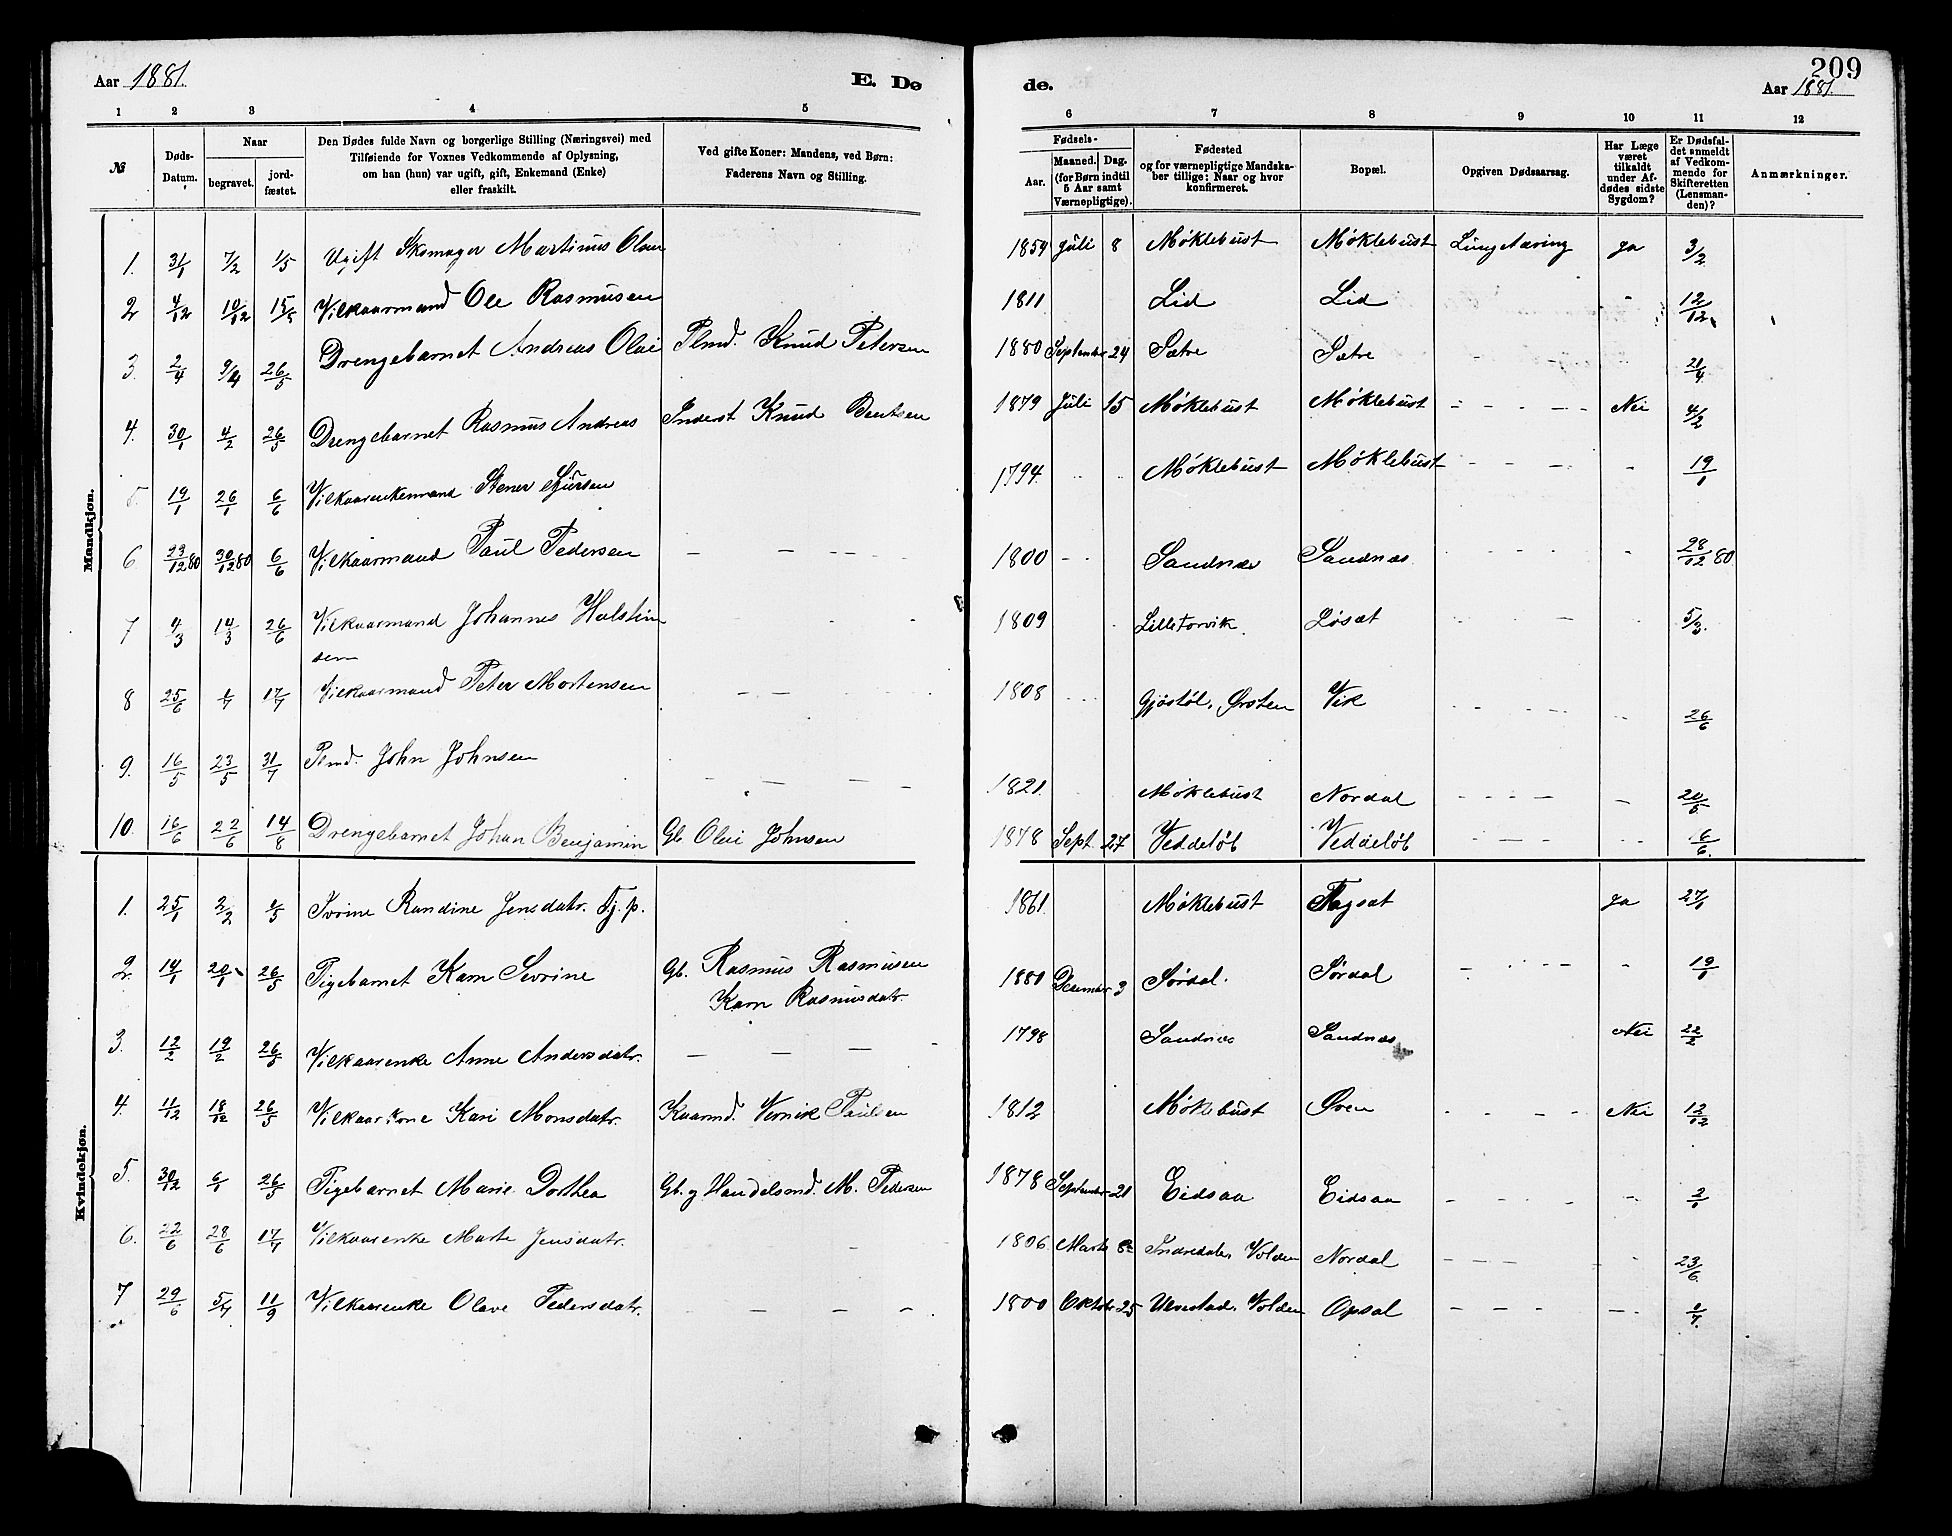 Aar 1881.
E. Dø
de.
209
Aar 1881.
1 2 3 4 5 6 7 8 9 10 11 12
№
Døds-Datum.
Naar
begravet.
jordfæstet.
Den Dødes fulde Navn og borgerlige Stilling (Næringsvei) med
Tilføiende for Voxnes Vedkommende af Oplysning,
om han (hun) var ugift, gift, Enkemand (Enke)
eller fraskilt.
Ved gifte Koner: Mandens, ved Børn:
Faderens Navn og Stilling.
Fødsels-
Aar.
Maaned. Dag.
(for Børn indtil
5 Aar samt
Værnepligtige).
Fødested
og for værnepligtige Mandska-
ber tillige: Naar og hvor
konfirmeret.
Bopæl.
Opgiven Dødsaarsag.
Har Læge
været
tilkaldt
under Af-
dødes sidste
Sygdom?
Er Dødsfal-
det anmeldt
af Vedkom-
mende for
Skifteretten
(Lensman-
den)?
Anmærkninger.
Mandkjøn.
1. 31/1 7/2 1/5 Ugift Skomager Martinus Olsen 1854 Juli 8 Møklebust Møklebust Lungetæring ja 3/2
2 4/12 10/12 15/5 Vilkaarmand Ole Rasmusen 1811 Lid Lid - 12/12
3. 2/4 9/4 26/5 Drengebarnet Andreas Olai Plmd. Knud Petersen 1880 September 24 Sætre Sætre 21/4
4. 30/1 4/2 26/5 Drengebarnet Rasmus Andreas Inderst Knud Bentsen 1879 Juli 15 Møklebust Møklebust - - - - Nei 4/2
5 19/1 26/1 6/6 Vilkaarenkemand Stener 1794. Møklebust Møklebust - - - - 19/1
6. 23/12 80 30/12 80 6/6 Vilkaarmand Paul Pedersen - - - - 1800 Sandnæs Sandnæs - - - - 28/12 80
7 4/3 14/3 26/6 Vilkaarmand Johannes Holstin
sen 1809 Lilletorvik. Løsæt 5/3.
8 25/6 1/7 17/7 Vilkaarmand Peter Mortensen - - - 1808 Gjøstøl, Ørsten Vik - - - - 26/6
9. 16/5 23/5 31/7 Plmd. John Johnsen - - - - 1821. Møklebust Nordal - - - - 20/5
10. 16/6 22/6 14/8 Drengebarnet Johan Benjamin Gb. Olai Johnsen 1878 Sept. 27 Veddeløb Veddeløb - - - 6/6.
Kvindekjøn.
1. 25/1 2/2 1/5 Ivrine Randine Jensdatr. Tj. p. 1861. Møklebust Fagsæt ja 27/1
2. 14/1 20/1 26/5 Pigebarnet Karn Sevrine Gb. Rasmus Rasmusen
Karn Rasmusdatr. 1880 December 3 Sørdal. Sørdal - - - 19/1
3. 12/2 19/2 26/5 Vilkaarenke Anne Andersdatr. - - - 1798 Sandnæs Sandnæs Nei 22/2
4. 11/12 18/12 26/5 Vilkaarkone Kari Monsdatr. Kaarmd. Vernik Paulsen 1812 Møklebust Øren - - - - Nei 12/12
5. 30/12 6/1 26/5 Pigebarnet Marie Dorthea Gb. og Handelsmd. M. Pedersen 1878 September 21 Eidsaa Eidsaa - - - - 2/1
6. 22/6 28/6 17/7 Vilkaarenke Marte Jensdatr. - 1806. Marts 8 Indredalen, Volden Nordal - - - - 23/6.
7 29/6 5/7 11/9 Vilkaarenke Olave Pedersdatr. - - - - 1800 Oktob. 25 Ulvestad, Volden Opsal - - - - 2/7.